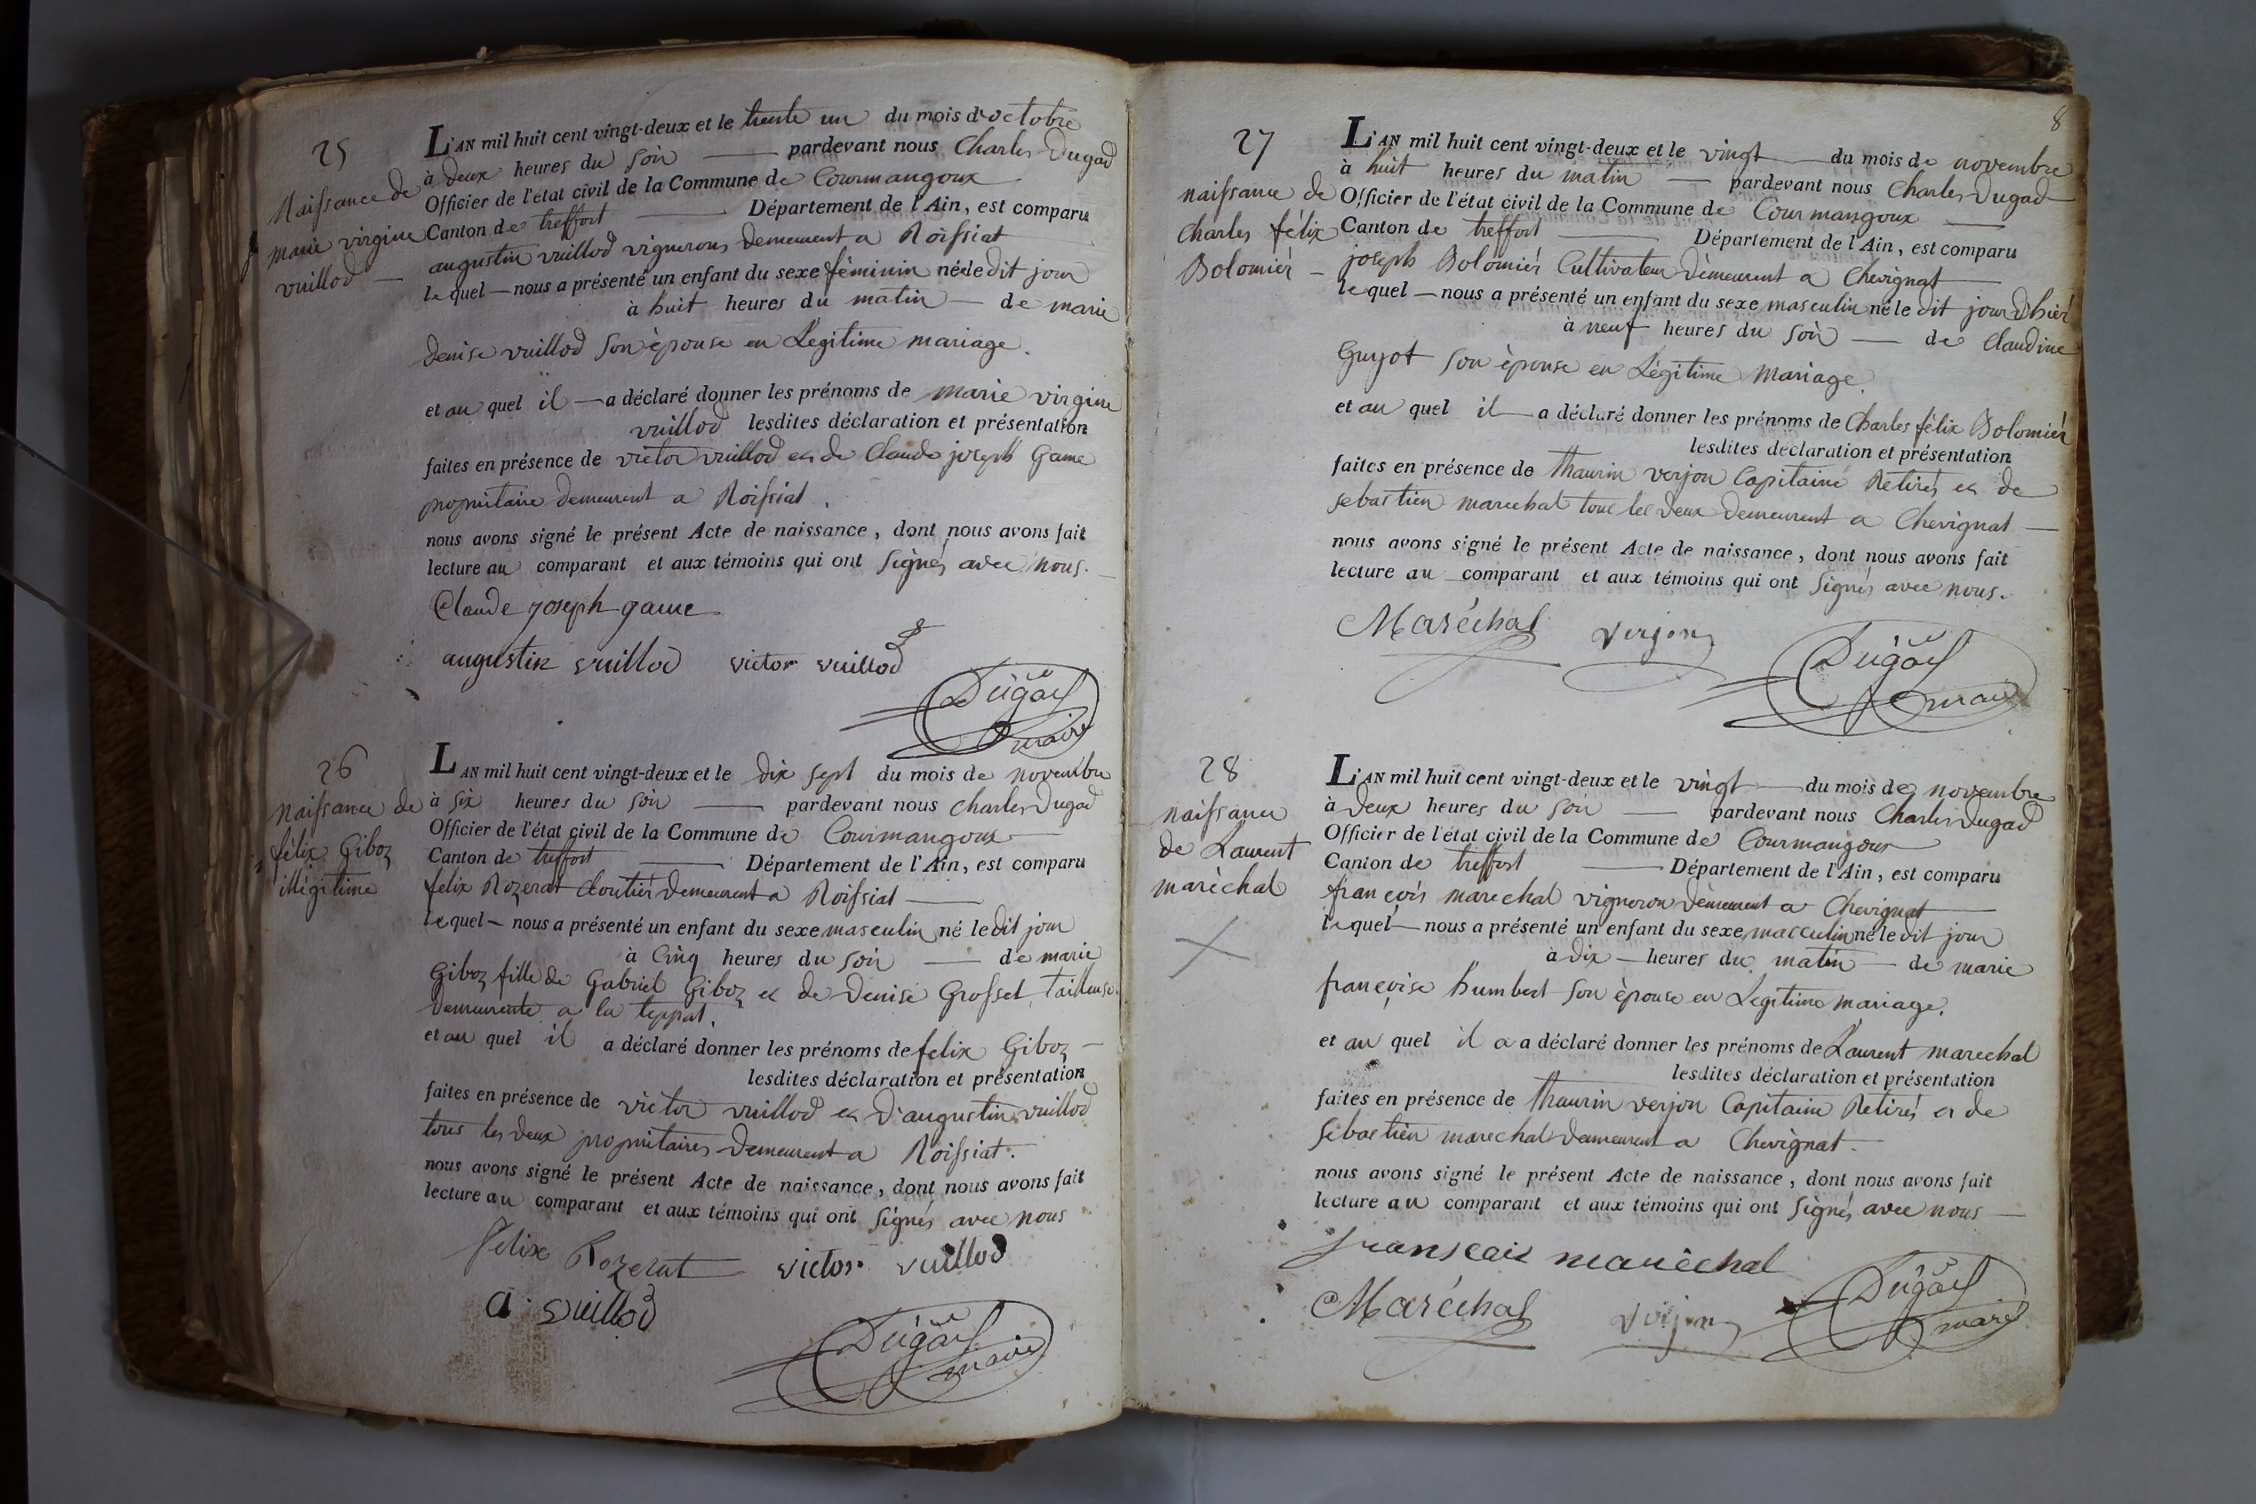 25
Naissance de
marie virginie
vuillod —
L'AN mil huit cent vingt-deux et le trente un du mois d'octobre
à deux heures du soir — pardevant nous Charles Dugad
Officier de l'état civil de la Commune de Courmangoux
Canton de treffort — Département de l'Ain, est comparu
augustin vuillod vignerons demeurent a Roissiat
lequel — nous a présenté un enfant du sexe féminin né le dit jour
à huit heures du matin — de marie
denise vuillod son épouse en Légitime mariage.
et au quel il — a déclaré donner les prénoms de marie virginie
vuillod lesdites déclaration et présentation
faites en présence de victor vuillod et de Claude joseph Game
propriitaire demeurent a Roissiat.
nous avons signé le présent Acte de naissance, dont nous avons fait
lecture au comparant et aux témoins qui ont signés avec nous. —
Claude joseph game
augustin vuillod victor vuillod
Dugad
maire
26
naissance de
félix Giboz
illégitime
L'AN mil huit cent vingt-deux et le dix sept du mois de novembre
à six heures du soir — pardevant nous Charles Dugad
Officier de l'état civil de la Commune de Courmangoux —
Canton de treffort — Département de l'Ain, est comparu
felix Rozerat cloutier demeurent a Roissiat —
lequel — nous a présenté un enfant du sexe masculin né le dit jour
à cinq heures du soir — de marie
Giboz fille de Gabriel Giboz et de Denise Grosset, tailleuse
demeurente a la teppat.
et au quel il a déclaré donner les prénoms de felix Giboz —
lesdites déclaration et présentation
faites en présence de victor vuillod et d'augustin vuillod
tous les deux propriitaires demeurent a Roissiat.
nous avons signé le présent Acte de naissance, dont nous avons fait
lecture au comparant et aux témoins qui ont signés avec nous
felix Rozerat victor vuillod
a. vuillod
Dugad
maire
8
27
naissance de
Charles félix
Bolomiér —
L'AN mil huit cent vingt-deux et le vingt — du mois de novembre
à huit heures du matin — pardevant nous Charles Dugad
Officier de l'état civil de la Commune de Courmangoux —
Canton de treffort — Département de l'Ain, est comparu
joseph Bolomiér Cultivateur demeurent a Chevignat —
lequel — nous a présenté un enfant du sexe masculin né le dit jour d'hiér
à neuf heures du soir — de Claudine
Guyot son épouse en Légitime mariage.
et au quel il — a déclaré donner les prénoms de Charles félix Bolomiér
lesdites déclaration et présentation
faites en présence de thaurin verjon Capitaine Retirés et de
sebastien marechal tous les deux demeurent a Chevignat —
nous avons signé le présent Acte de naissance, dont nous avons fait
lecture au comparant et aux témoins qui ont signés avec nous.
Maréchal verjon
Dugad
maire
28
naissance
de Laurent
maréchal
L'AN mil huit cent vingt-deux et le vingt — du mois de novembre
à deux heures du soir — pardevant nous Charles Dugad
Officier de l'état civil de la Commune de Courmangoux
Canton de treffort — Département de l'Ain, est comparu
françois marechal vigneron demeurent a Chevignat —
lequel — nous a présenté un enfant du sexe masculin né le dit jour
à dix — heures du matin — de marie
françoise humbert son épouse en Legitime mariage.
et au quel il a a déclaré donner les prénoms de Laurent marechal
lesdites déclaration et présentation
faites en présence de thaurin verjon Capitaine Retirés et de
sebastien marechal demeurent a Chevignat —
nous avons signé le présent Acte de naissance, dont nous avons fait
lecture au comparant et aux témoins qui ont signés avec nous —
franscais marèchal
Maréchal verjon
Dugad
maire